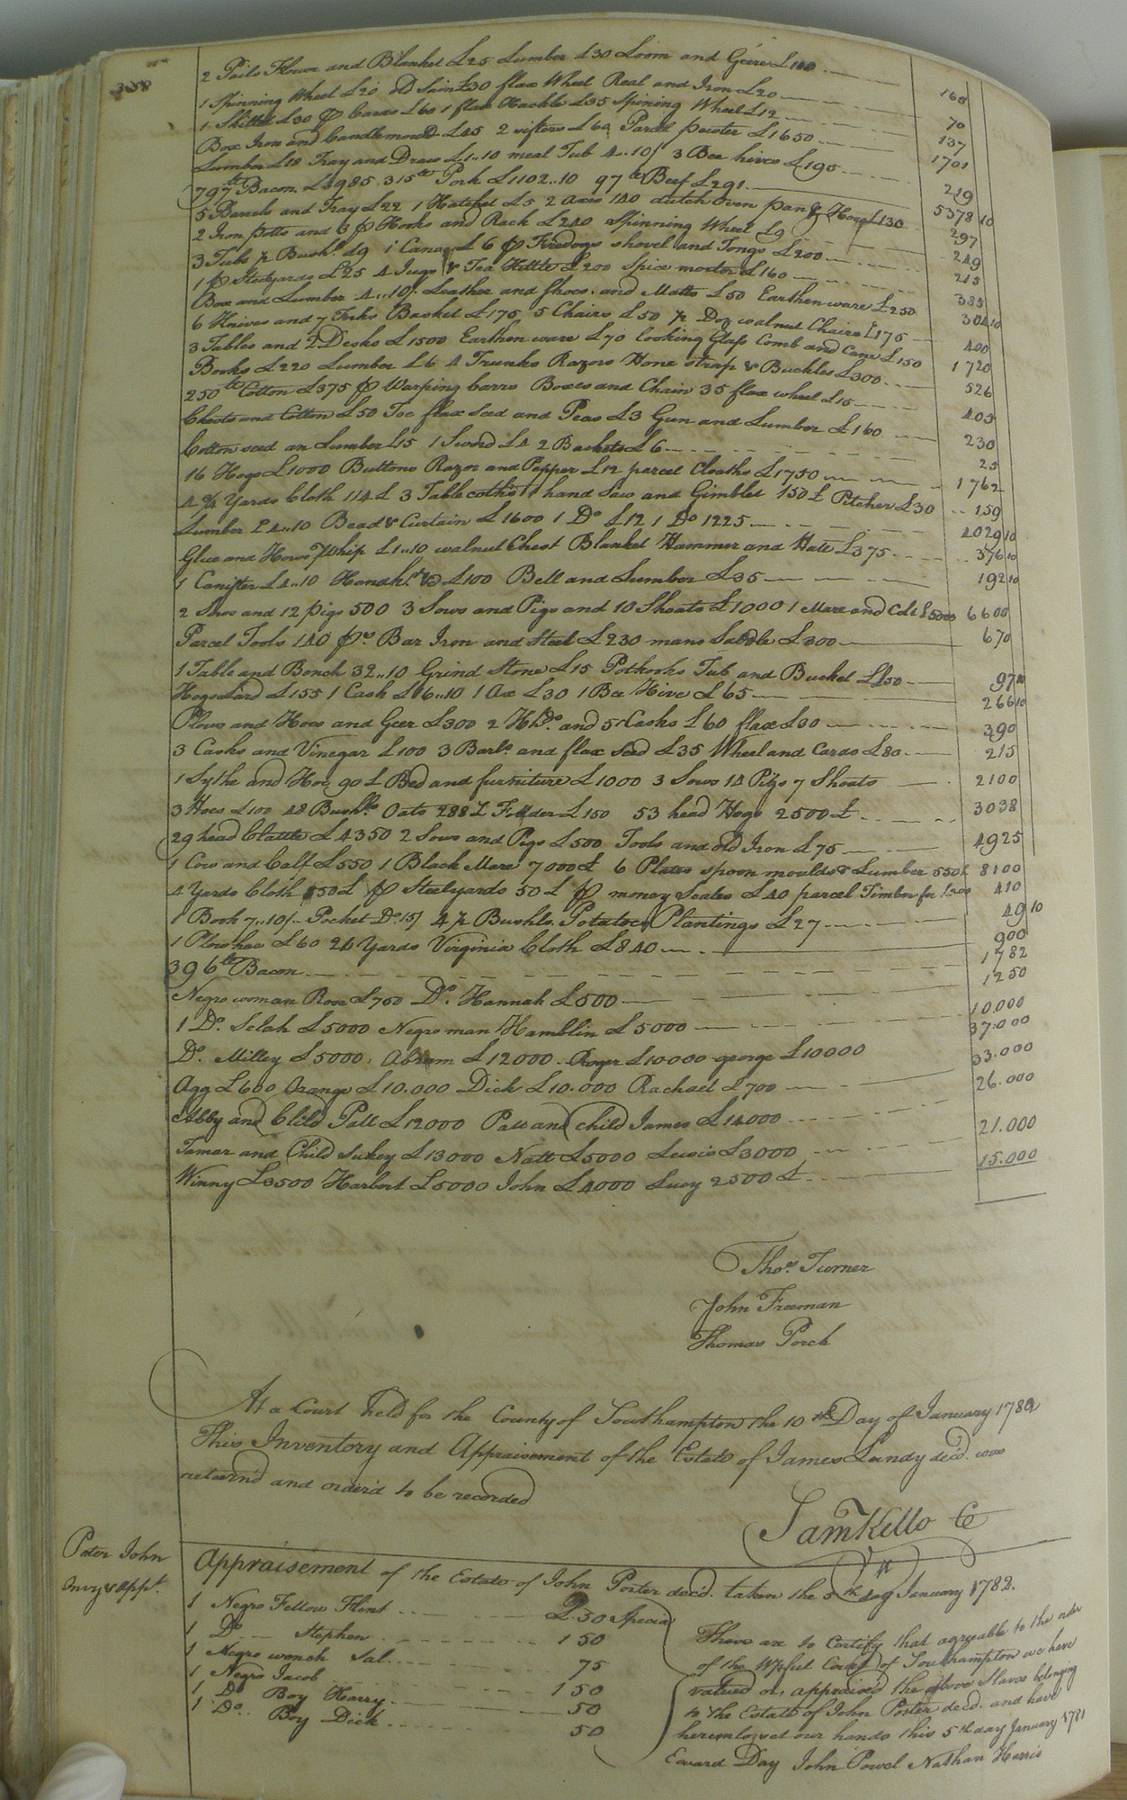 2 Pails Flour and Blanket £25 Lumber £30 Loom and Geer £110 160
1 Spinning Wheel £20 old Sain £30 flax Wheel Real and Iron £20 70
1 Skillet £30 pr Cards £60 1 flax Hackle £35 Spining Wheel £12 137
Box Iron and Candlemould £45 2 sifters £6 Parcel pewter £1650 1701
Lumber £18 Tray and Draws £1..10 meal Tub 4..10/ 3 Bee hives £195 219
797lb Bacon £3985. 315lb Pork £1102..10 97lb Beef £291 5378 10
5 Barrels and Tray £22 1 Hatchet £5 2 Axes 140 dutch oven pan & £130 297
2 Iron potts and 3 pr Hooks and Rack £240 Spinning Wheel £9 249
3 Tubs pr Bush. £9 1 Canoe £6 pr Firedogs shovel and Tongs £200 215
1 pr Steelyards £25 4 Jugs & Tea Kettle £200 Spice mortar £160 385
Box and Lumber 4..10/. Leather and Shoes and Matts £50 Earthen ware £250 304 10
6 Knives and 7 Forks Basket £175 5 Chairs £50 ½ Doz walnut Chairs £175 400
3 Tables and 2 Desks £1500 Earthen ware £70 looking Glass Comb and Cann £150 1720
Books £220 Lumber £6 4 Trunks Razors Hone strap & Buckles £300 526
250lb Cotton £375 pr Warping barrs Boxes and Chain 35 flax wheel £15 405
Chests and Cotton £50 Toc flax Seed and Peas £3 Gun and Lumber £160 230
Cotton seed an Lumber £15 1 Sword £4 2 Baskets £6 25
16 Hogs £1000 Buttons Razor and Pepper £12 parcel Cloaths £1750 1762
4¾ Yards Cloth 114£ 3 Table coths 1 hand Saw and Gimblet 150£ Pitcher £30 159
Lumber £4..10 Bead & Curtain £1600 1 Do £12 1 Do 1225 4029 10
Glue and Horse Whip £1..10 walnut Chest Blanket Hammer and Hatt £375 376 10
1 Canister £4..10 £100 Bell and Lumber £35 192 10
2 Sows and 12 pigs 500 3 Sows and Pigs and 10 Shoats £1000 1 Mare and Colt £5000 6600
Parcel Tools 140 prs Bar Iron and Steel £230 mans Saddle £300 670
1 Table and Bench 32..10 Grind Stone £15 Pothooks Tub and Bucket £50 97 10
Hogs Lard £155 1 Cask £16..10 1 Ax £30 1 Bee Hive £65 266 10
Plows and Hoes and Geer £300 2 Hhds. and 5 Casks £60 flax £30 390
3 Casks and Vinegar £100 3 Barls and flax Seed £35 Wheel and Cards £80 215
1 Sythe and Hoe 90£ Bed and furniture £1000 3 Sows 14 Pigs 7 Shoats 2100
3 Hoes £100 48 Bushls Oats 288£ Fodder £150 53 head Hogs 2500£ 3038
29 head Cattle £4350 2 Sows and Pigs £500 Tools and old Iron £75 4925
1 Cow and Calf £550 1 Black Mare 7000£ 6 Plates spoon moulds & Lumber 550£ 8100
4 Yards Cloth 350£ pr Steelyards 50£ pr money Scales £40 parcel Timber for 410
1 Book 7..10/. Pocket Do 15/ 4½ Bushls. Potatoe Plantings £27 49 10
1 Plow hoe £60 24 Yards Virginia Cloth £840 900
396lb Bacon 1782
Negro woman Rose £750 Do. Hannah £500 1250
1 Do. Selah £5000 Negro man Hamblin £5000 10.000
Do. Milley £5000, Abram £12000. Roger £10000 george £10000 37.000
Agg £600 Orange £10.000 Dick £10.000 Rachael £700 33.000
Abby and Child Patt £12000 Patt and child James £14000 26.000
Tamar and Child Sukey £13000 Natt £5000 Lewis £3000 21.000
Winny £3500 Harbert £5000 John £4000 Lucy 2500£ 15.000
Thos. Turner
John Freeman
Thomas Porch
At a Court held for the County of Southampton the 10th Day of January 1782
This Inventory and Appraisement of the Estate of James Lundy decd. was
return'd and order'd to be recorded
Sam Kello Cc
Porter John
Invy & Appt.
Appraisement of the Estate of John Porter decd. taken the 5th day January 1782.
1 Negro Fellow Flint £50 Specia
1 Do Stephen 150
1 Negro wench Sal 75
1 Negro Jacob 150
1 Do Boy Harry 50
1 Do Boy Dick 50
These are to Certify that agreeable to the order
of the Wpfull Court of Southampton we have
valued or appraised the above Slaves belonging
to the Estate of John Porter decd. and have
hereunto set our hands this 5th day January 1781
Edward Day John Powel Nathan Harris